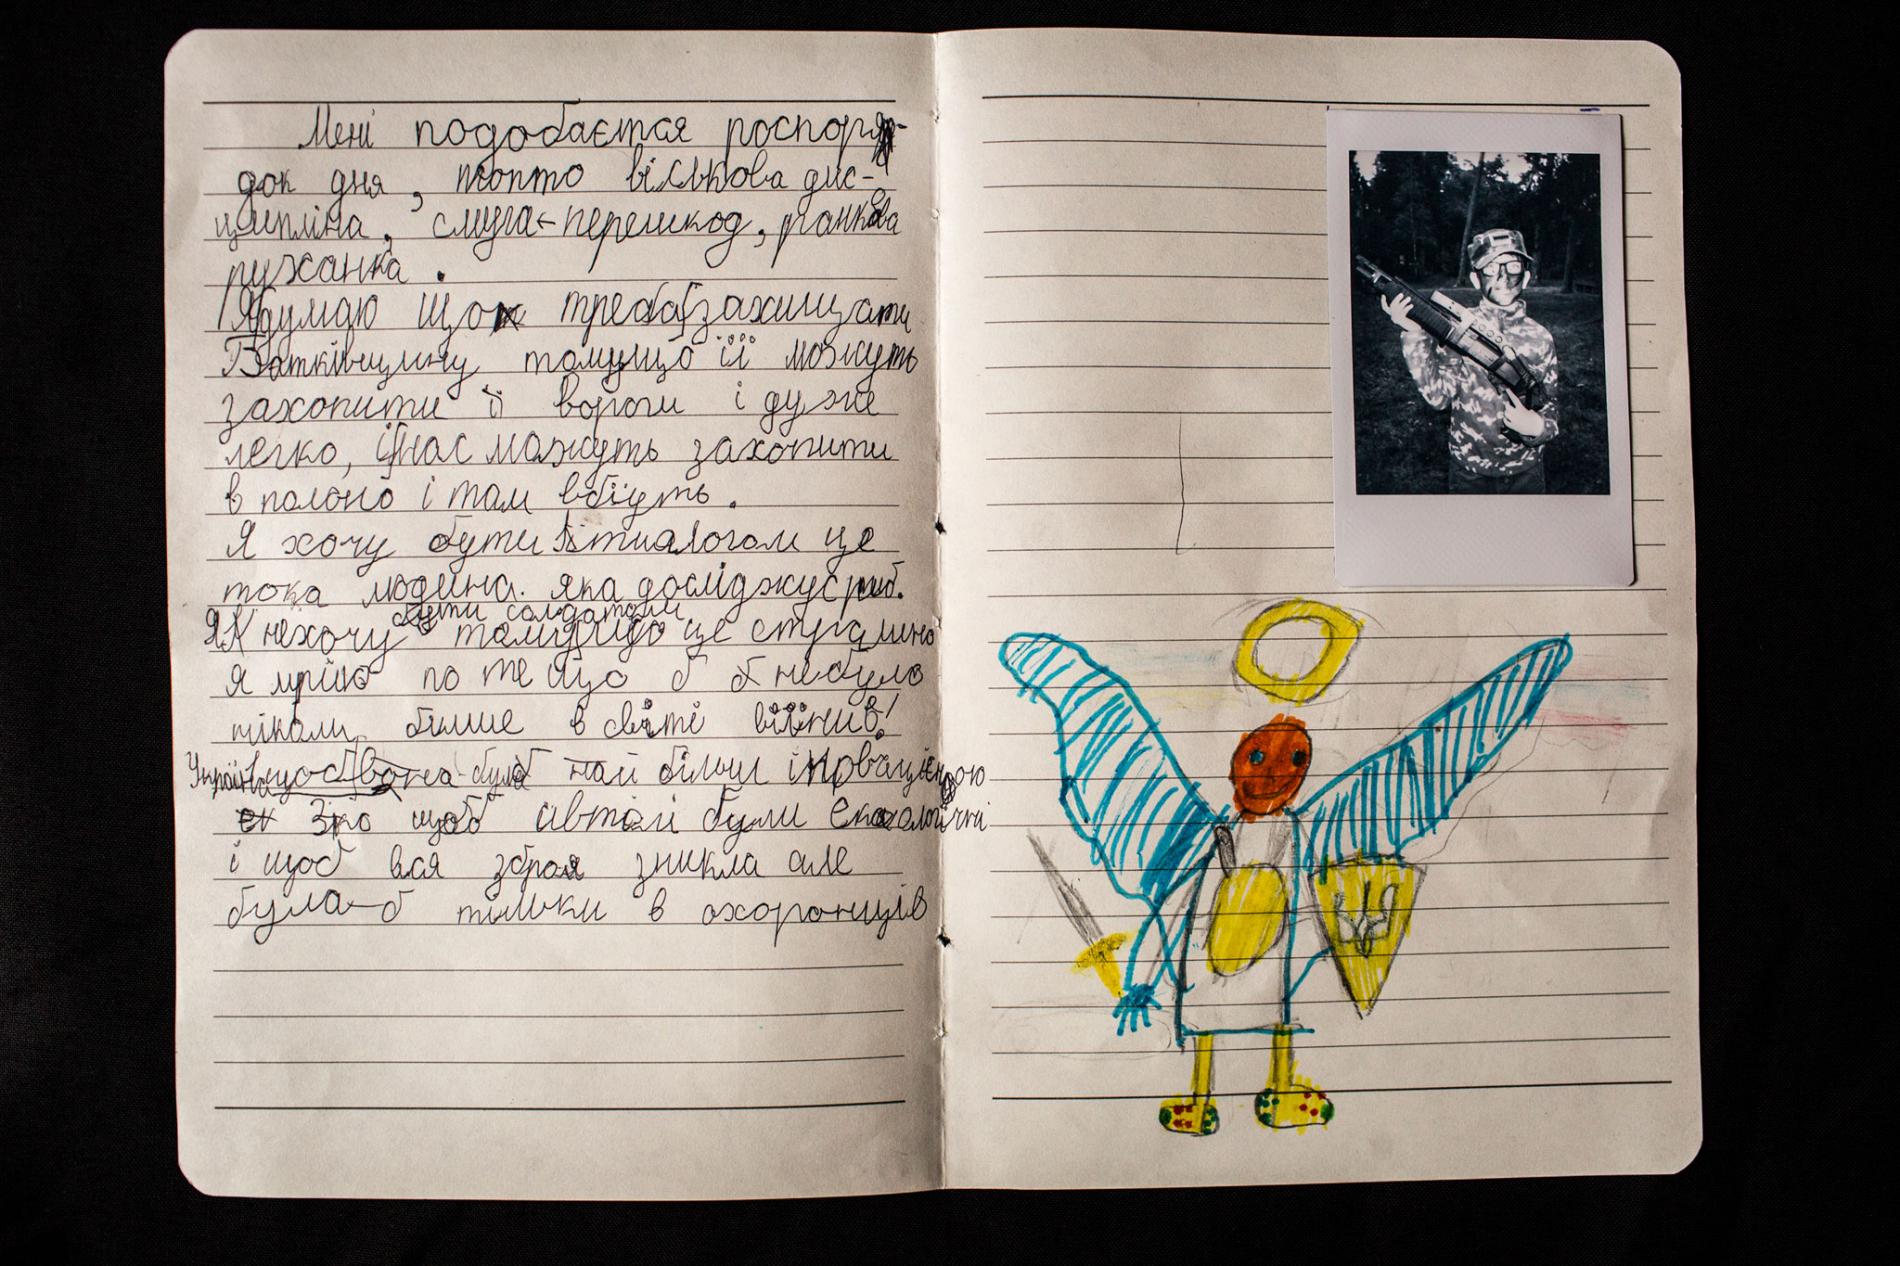 Мені подобаєтся роспоря-
док дня, топто віськова дис-
ципліна, смуга-перешкод, ранкова
руханка.
Я думаю що треба захищати
Батківщину томущо її можуть
захопити її вороги і дуже
легко, і нас можуть захопити
в полоно і там вбїуть.
Я хочу бути іхтиалогом це
тока людина. яка досліджує риб.
Я нехочу бути солдатом томущо це стугдмено
Я мрію по те що б б небуло
ніколи більше в світі війнив!
Україна щоб вона була б най більш іновацієною
зро щоб автомі були екалогічні
і щоб вся зброя зникла але
була-б тільки в охоронців